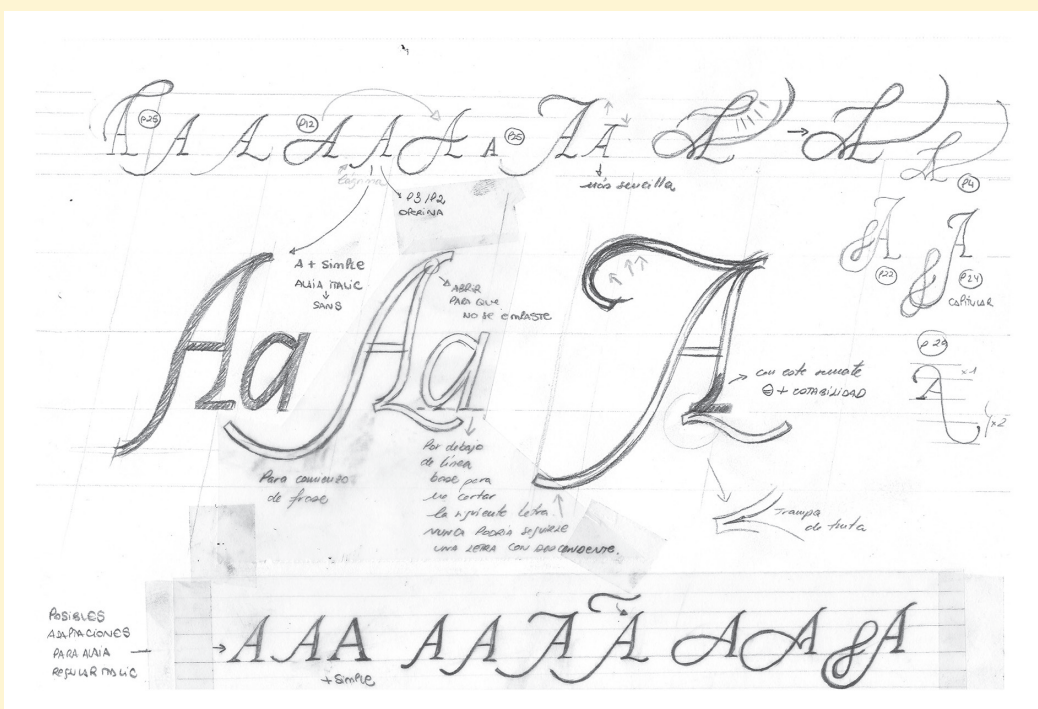 A A A A A A A A A A A A
P25 P12 P25
P3/P2
OPERINA
más sencilla
P4
P22
P24
CAPITULAR
A + Simple
ALAIA ITALIC
SANS
ABRIR
PARA QUE
NO SE EMPASTE
Aa Aa A
P29
x1
x2
con este remate
+ COTABILIDAD
Para comienzo
de frase
Por debajo
de línea
base para
no cortar
la siguiente letra
NUNCA PODRÍA SEGUIRLE
UNA LETRA CON DESCENDENTE.
Trampa
de tinta
POSIBLES
ADAPTACIONES
PARA ALAIA
REGULAR ITALIC
A A A A A A A A A A
+ Simple